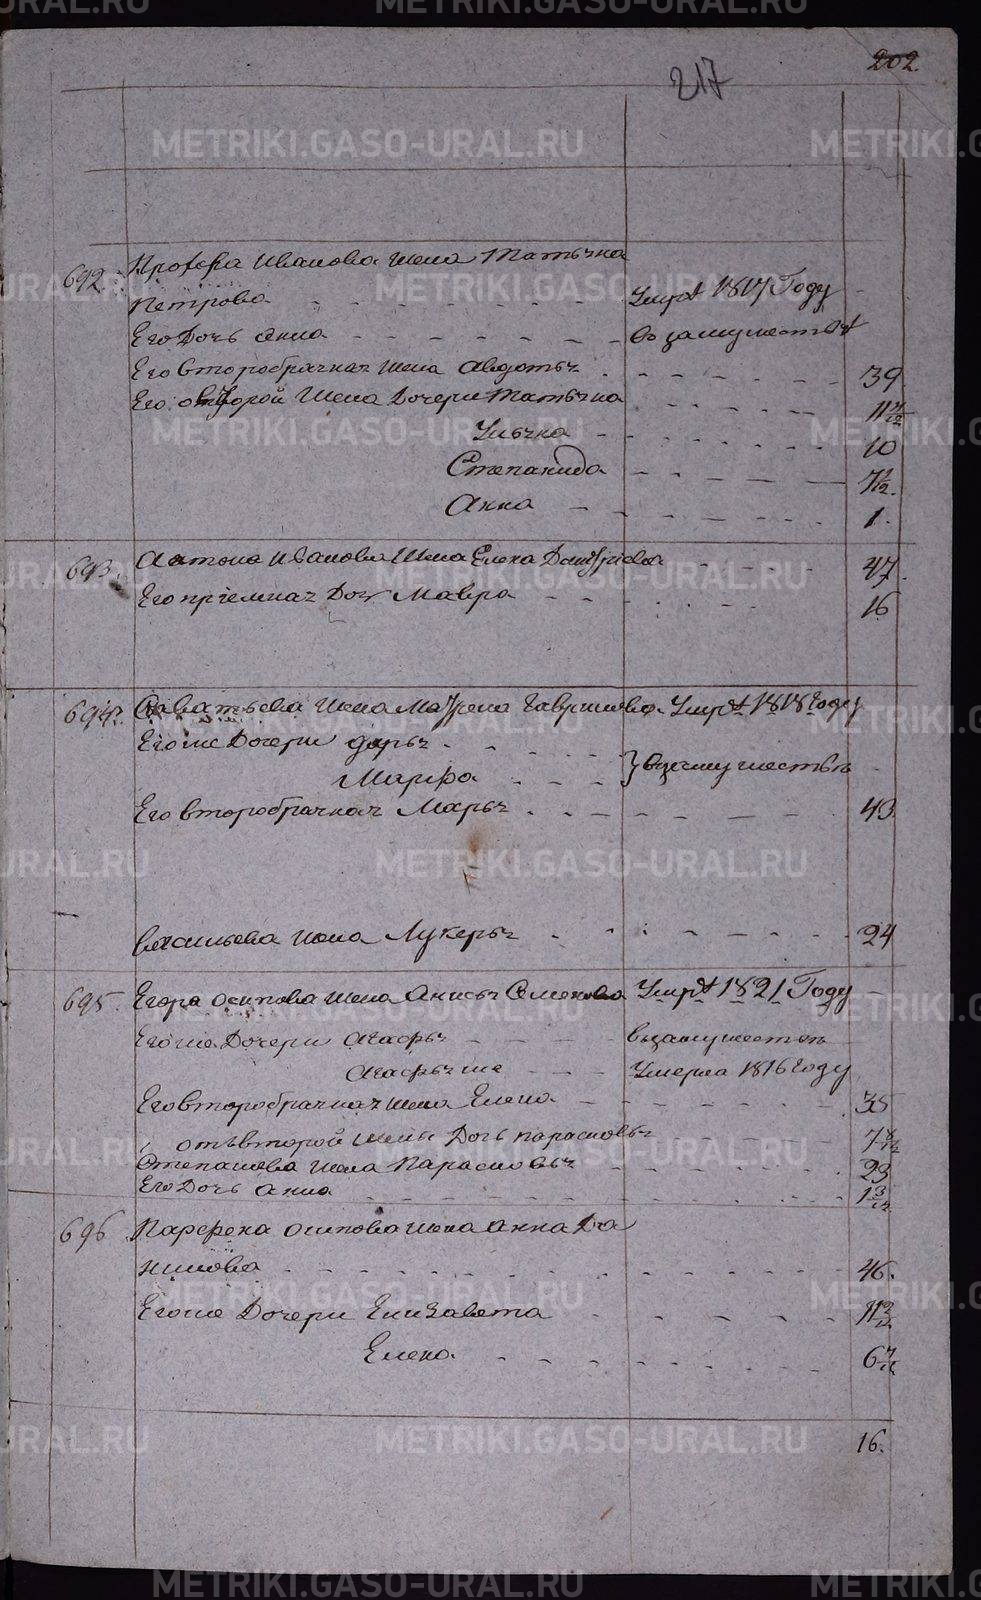 202.
217
692. Прохора Иванова жена Татьяна
Петрова - - - - - - Умрѣ 1817 Году
Его Дочь Анна - - - - - - - въ замужествѣ
Его второбрачная жена Авдотья - - - - - - 39
Его от второй Жены Дочери Татьяна - - - - - 11
Ульяна - - - - - - - 10
Степанида - - - - - - 7
Анна - - - - - - - 1.
693. Антона Иванова Жена Елена - - - - 47.
Его приемная Дочь Мавра - - - - - - 16
694. Саватьева Жена Матрена Гаврилова Умрѣ 1818 Году
Его же Дочери Дарья - - - - -
Марфа - - - } взамужествѣ
Его второбрачная Марья - - - - - - - 43
Васильева жена Лукерья - - - - - - - 24
695. Егора Осипова жена Анисья Семенова Умрѣ 1821 Году
Его же Дочери Агафья - - - - взамужествѣ
Агафья же - - - Умерла 1816 Году
Его второбрачная жена Елена - - - - - - - 35
отъ второй жены Дочь парасковья - - - - - 7 8/12
Степанова жена Парасковья - - - - - - - 23
Его Дочь Анна - - - - - - - - - - 1 3/12
696. Парфена Осипова жена Анна Да
нилова - - - - - - - - - - - 46.
Его же Дочери Елизавета - - - - - - 11
Елена - - - - - - - - 6
16.
METRIKI.GASO-URAL.RU